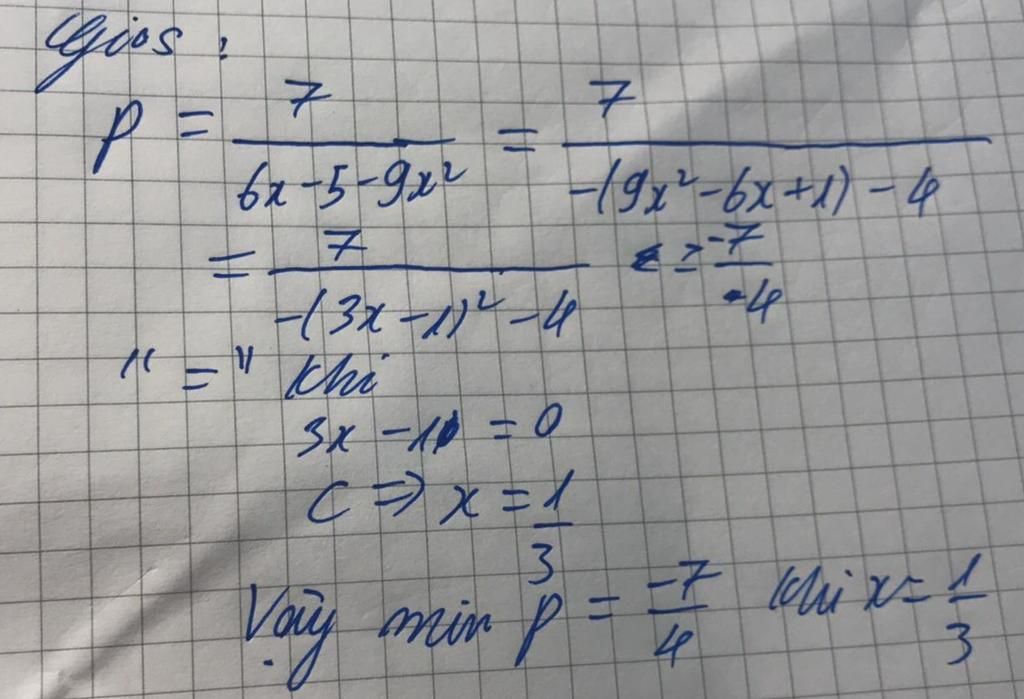 Giải :
P = 7/(6x - 5 - 9x²) = 7/(-(9x² - 6x + 1) - 4)
= 7/(-(3x - 1)² - 4) ≥ -7/4
" = " khi
3x - 1 = 0
<=> x = 1/3
Vậy min P = -7/4 khi x = 1/3